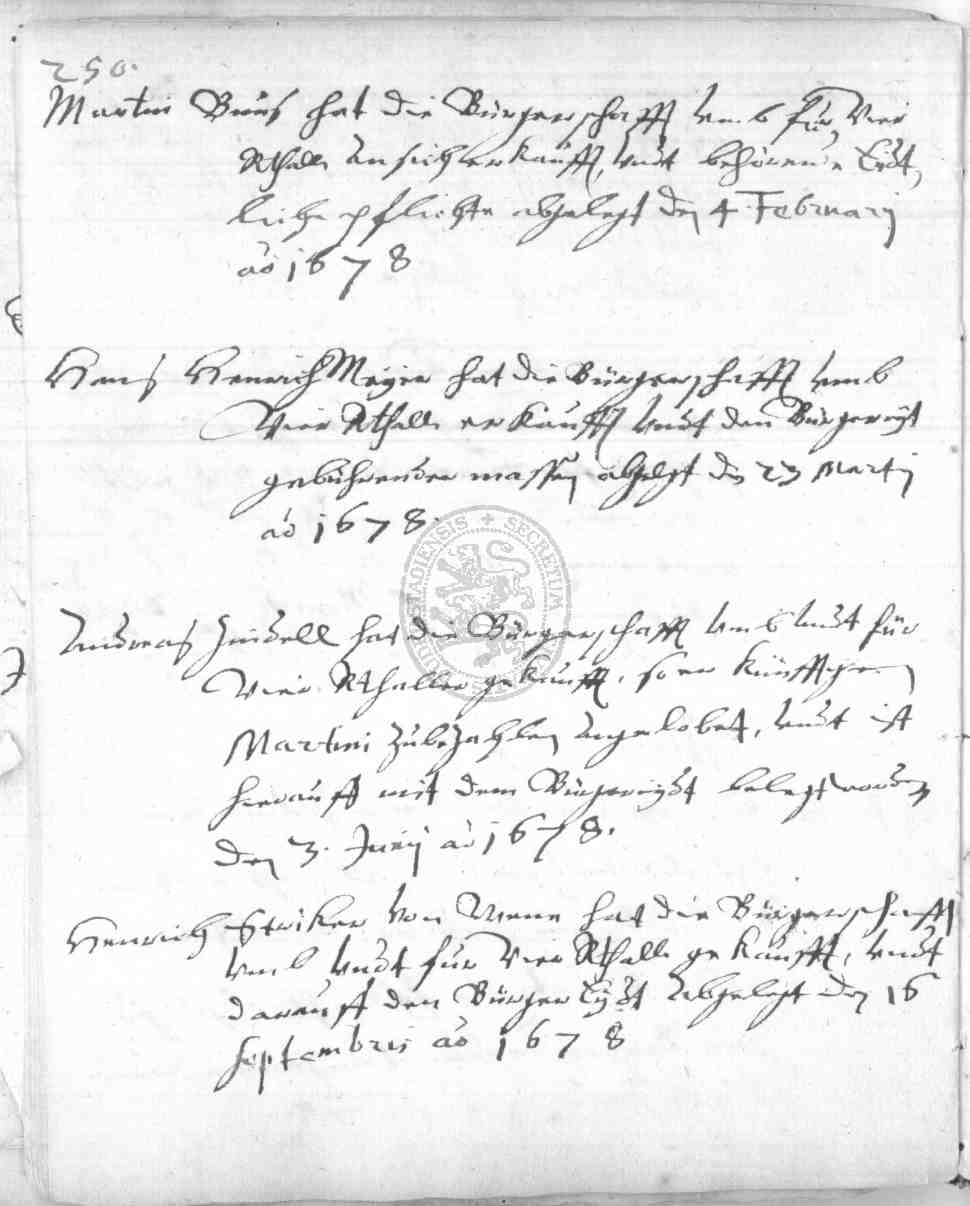 250.
Martin hat die Bürgerschafft umb für Vier
Rthall. an sich erkaufft, undt behörende Eydt,
liche pflichte abgelegt den 4 Februarij
aö 1678
Hans Henrich Meyer hat die Bürgerschafft umb
Vier Rthall. erkaufft undt den Bürgereyt
gebührender massen abgelegt den 23 Martij
aö 1678.
Andreas hat die Bürgerschafft umb undt für
Vier Rthaller gekaufft, so er künfftigen
Martini zubezahlen angelobet, undt ist
hierauff mit dem Bürgereydt belegt worden
den 3. Junij aö 1678.
Henrich Striker von hat die Bürgerschafft
umb undt für Vier Rthall. gekaufft, undt
darauff den Bürger Eydt abgelegt den 16
Septembris aö 1678
SECRETUM